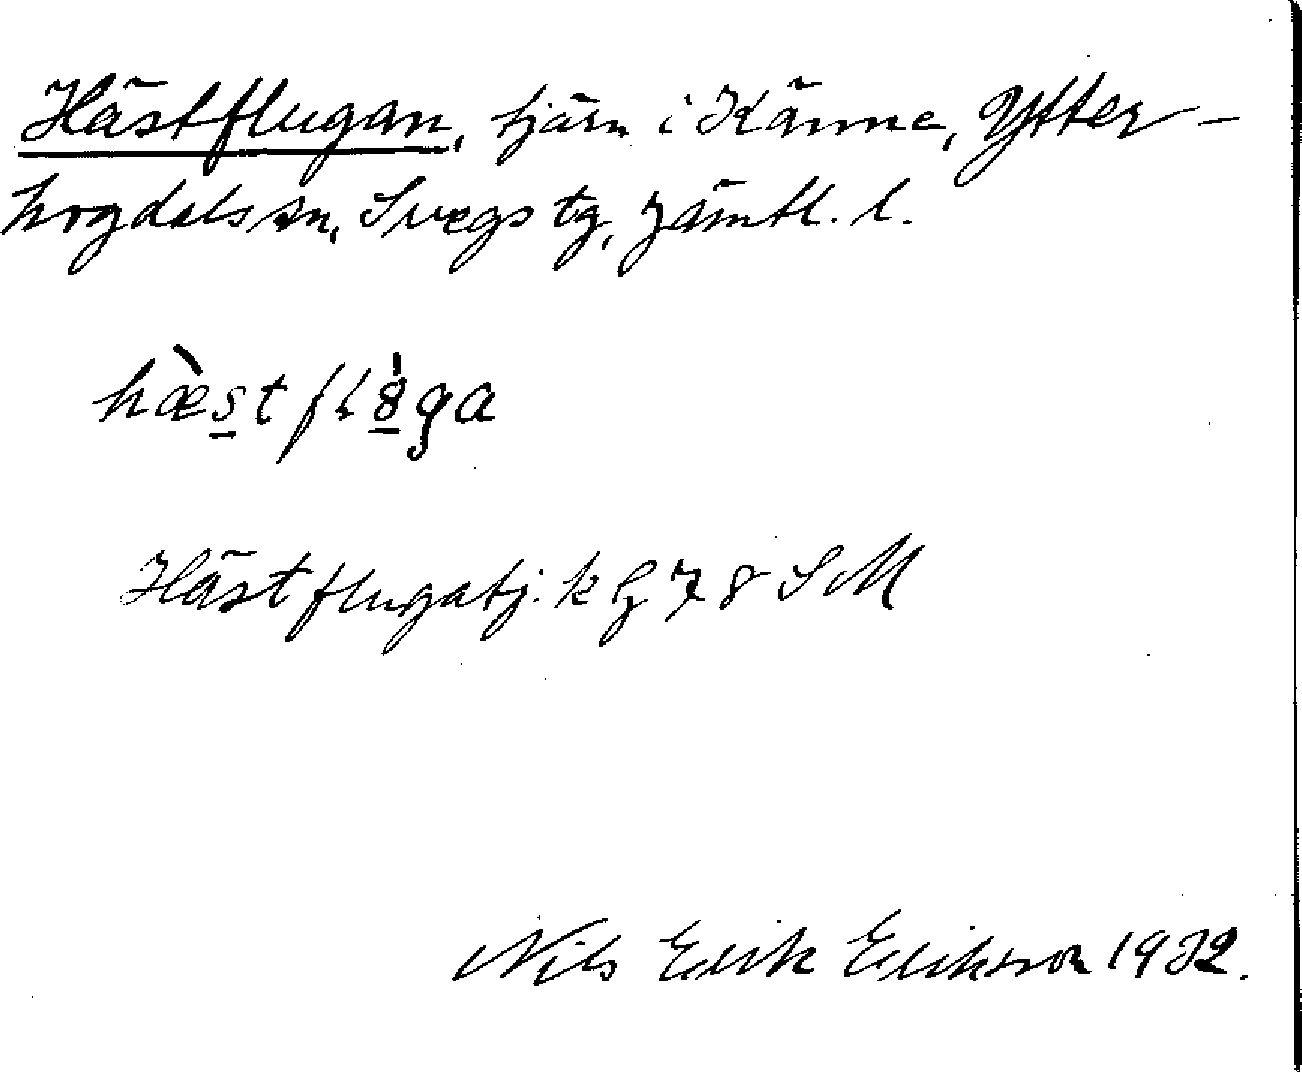 Hästflugan, tjärn i Känne, Ytter-
hogdals sn, Svegs tg, Jämtl. l.
hæ̀stfl 8̍ga
Hästflugatj. k bl 78 SM
Nils Erik Erikson 1932.